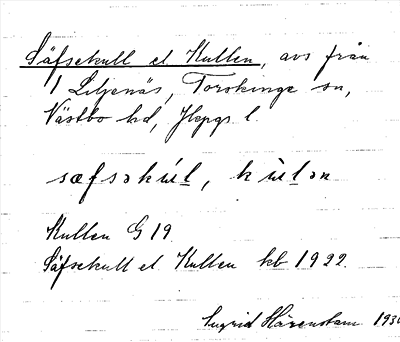 Säfsekull el. Kullen, avs från
1 Liljenäs, Torskinge sn,
Västbo hd, Jkpgs l.
sæfsəkúl, kùlən
Kullen G 19.
Säfsekull el. Kullen kb 1922.
Ingrid Härenstam